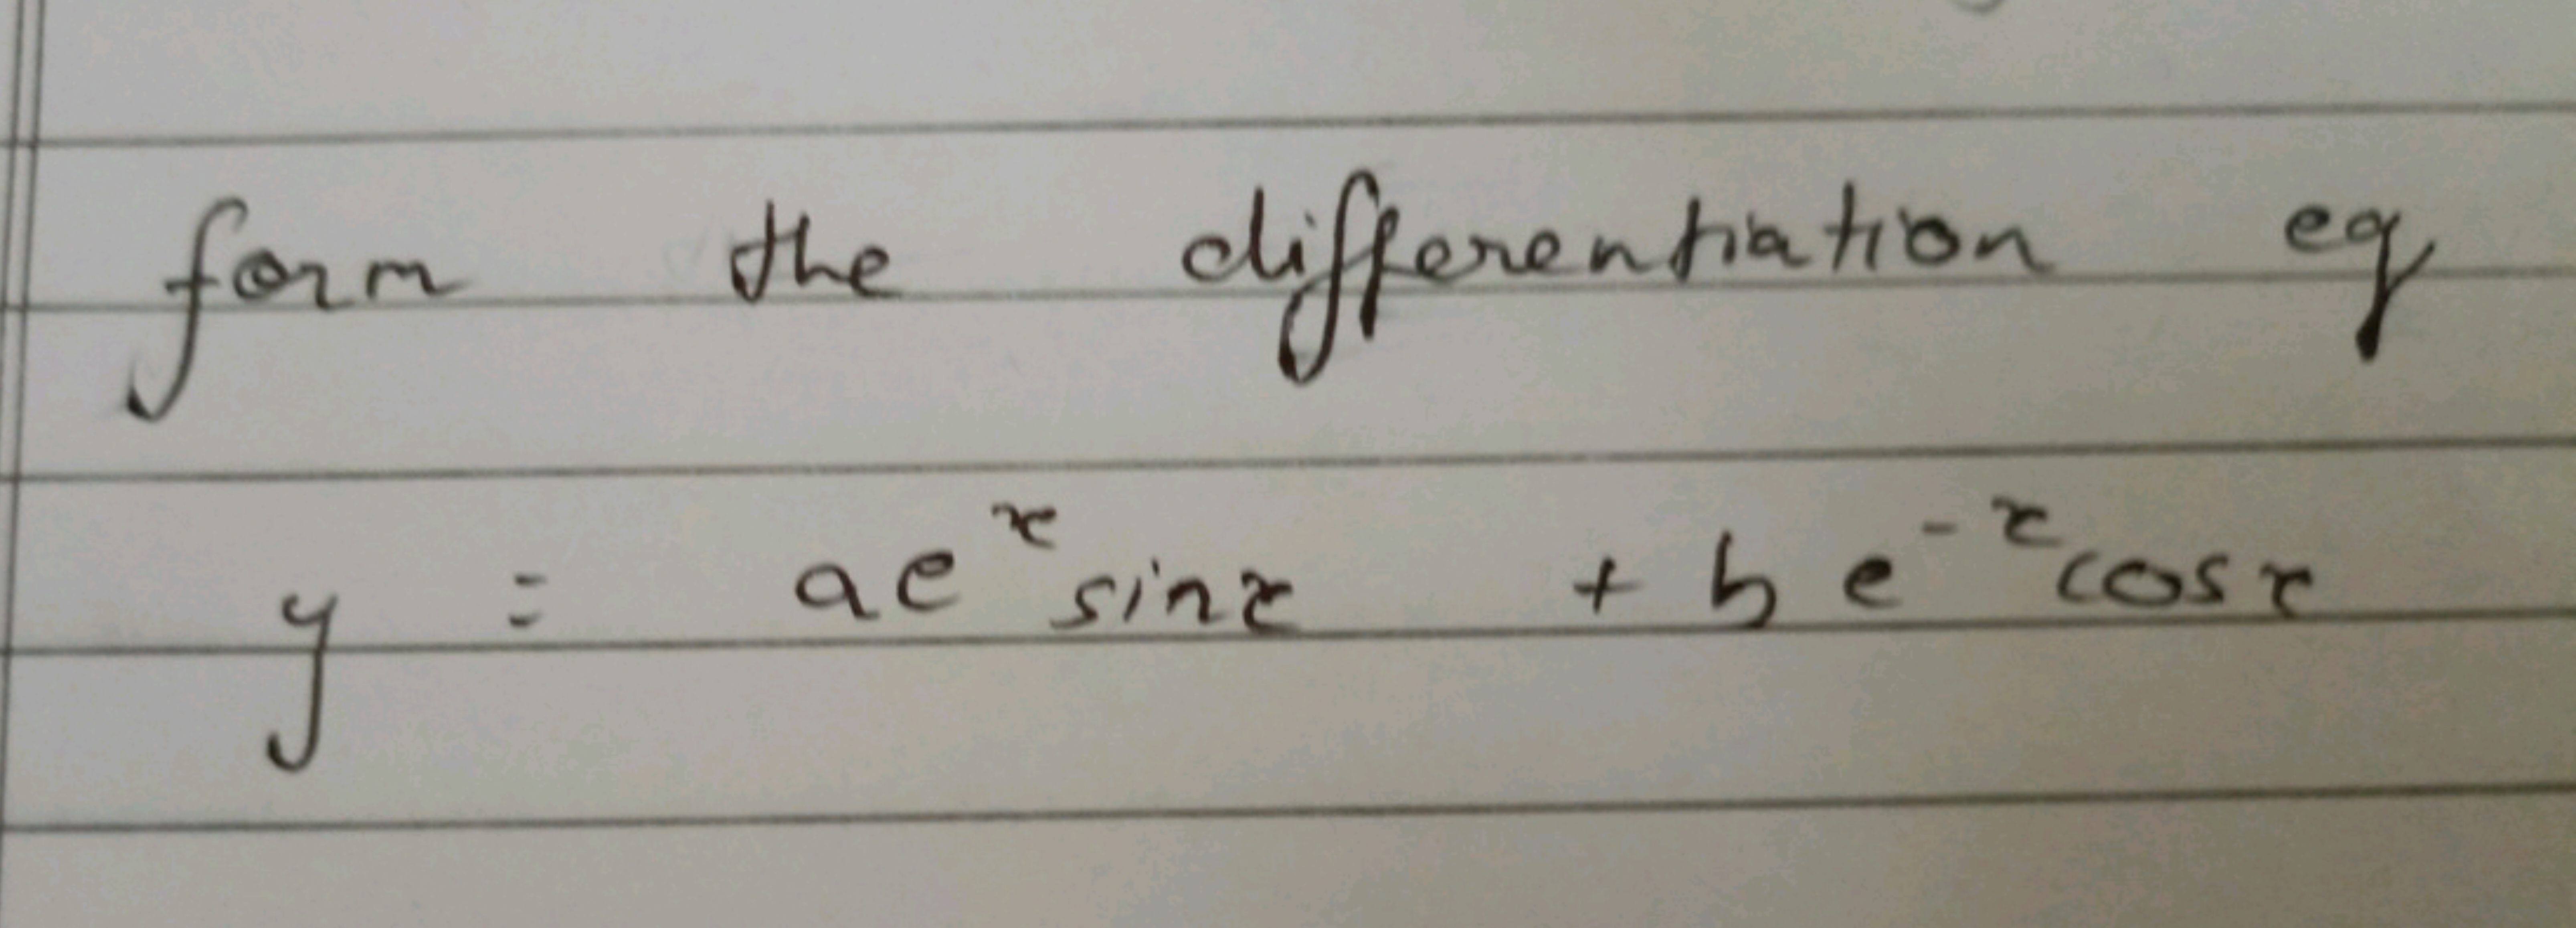 form the differentiation eq
y = ae^x sinx + b e^-x cosx